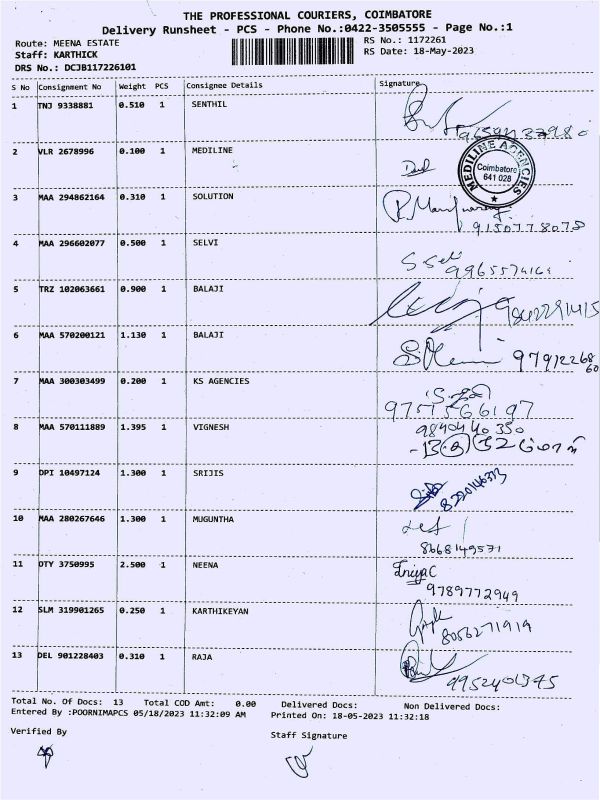 THE PROFESSIONAL COURIERS, COIMBATORE
Delivery Runsheet - PCS - Phone No.:0422-3505555 - Page No.:1
Route: MEENA ESTATE RS No.: 1172261
Staff: KARTHICK RS Date: 18-May-2023
DRS No.: DCJB117226101
S No Consignment No Weight PCS Consignee Details Signature
1 TNJ 9338881 0.510 1 SENTHIL
2 VLR 2678996 0.100 1 MEDILINE
MEDILINE AGENCIES
Coimbatore
641 028
3 MAA 294862164 0.310 1 SOLUTION
9150778078
4 MAA 296602077 0.500 1 SELVI
S Selvi
9965574164
5 TRZ 102063661 0.900 1 BALAJI
9842291415
6 MAA 570200121 1.130 1 BALAJI
9791226860
7 MAA 300303499 0.200 1 KS AGENCIES
9757566197
8 MAA 570111889 1.395 1 VIGNESH
9840440350
9 DPI 10497124 1.300 1 SRIJIS
10 MAA 280267646 1.300 1 MUGUNTHA
8668149571
11 OTY 3750995 2.500 1 NEENA
IniyaC
9789772949
12 SLM 319901265 0.250 1 KARTHIKEYAN
8056271919
13 DEL 901228403 0.310 1 RAJA
9952401345
Total No. Of Docs: 13 Total COD Amt: 0.00 Delivered Docs: Non Delivered Docs:
Entered By :POORNIMAPCS 05/18/2023 11:32:09 AM Printed On: 18-05-2023 11:32:18
Verified By Staff Signature